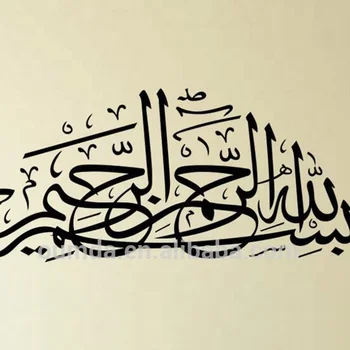 بسم الله الرحمن الرحيم
oumda.en.alibaba.com